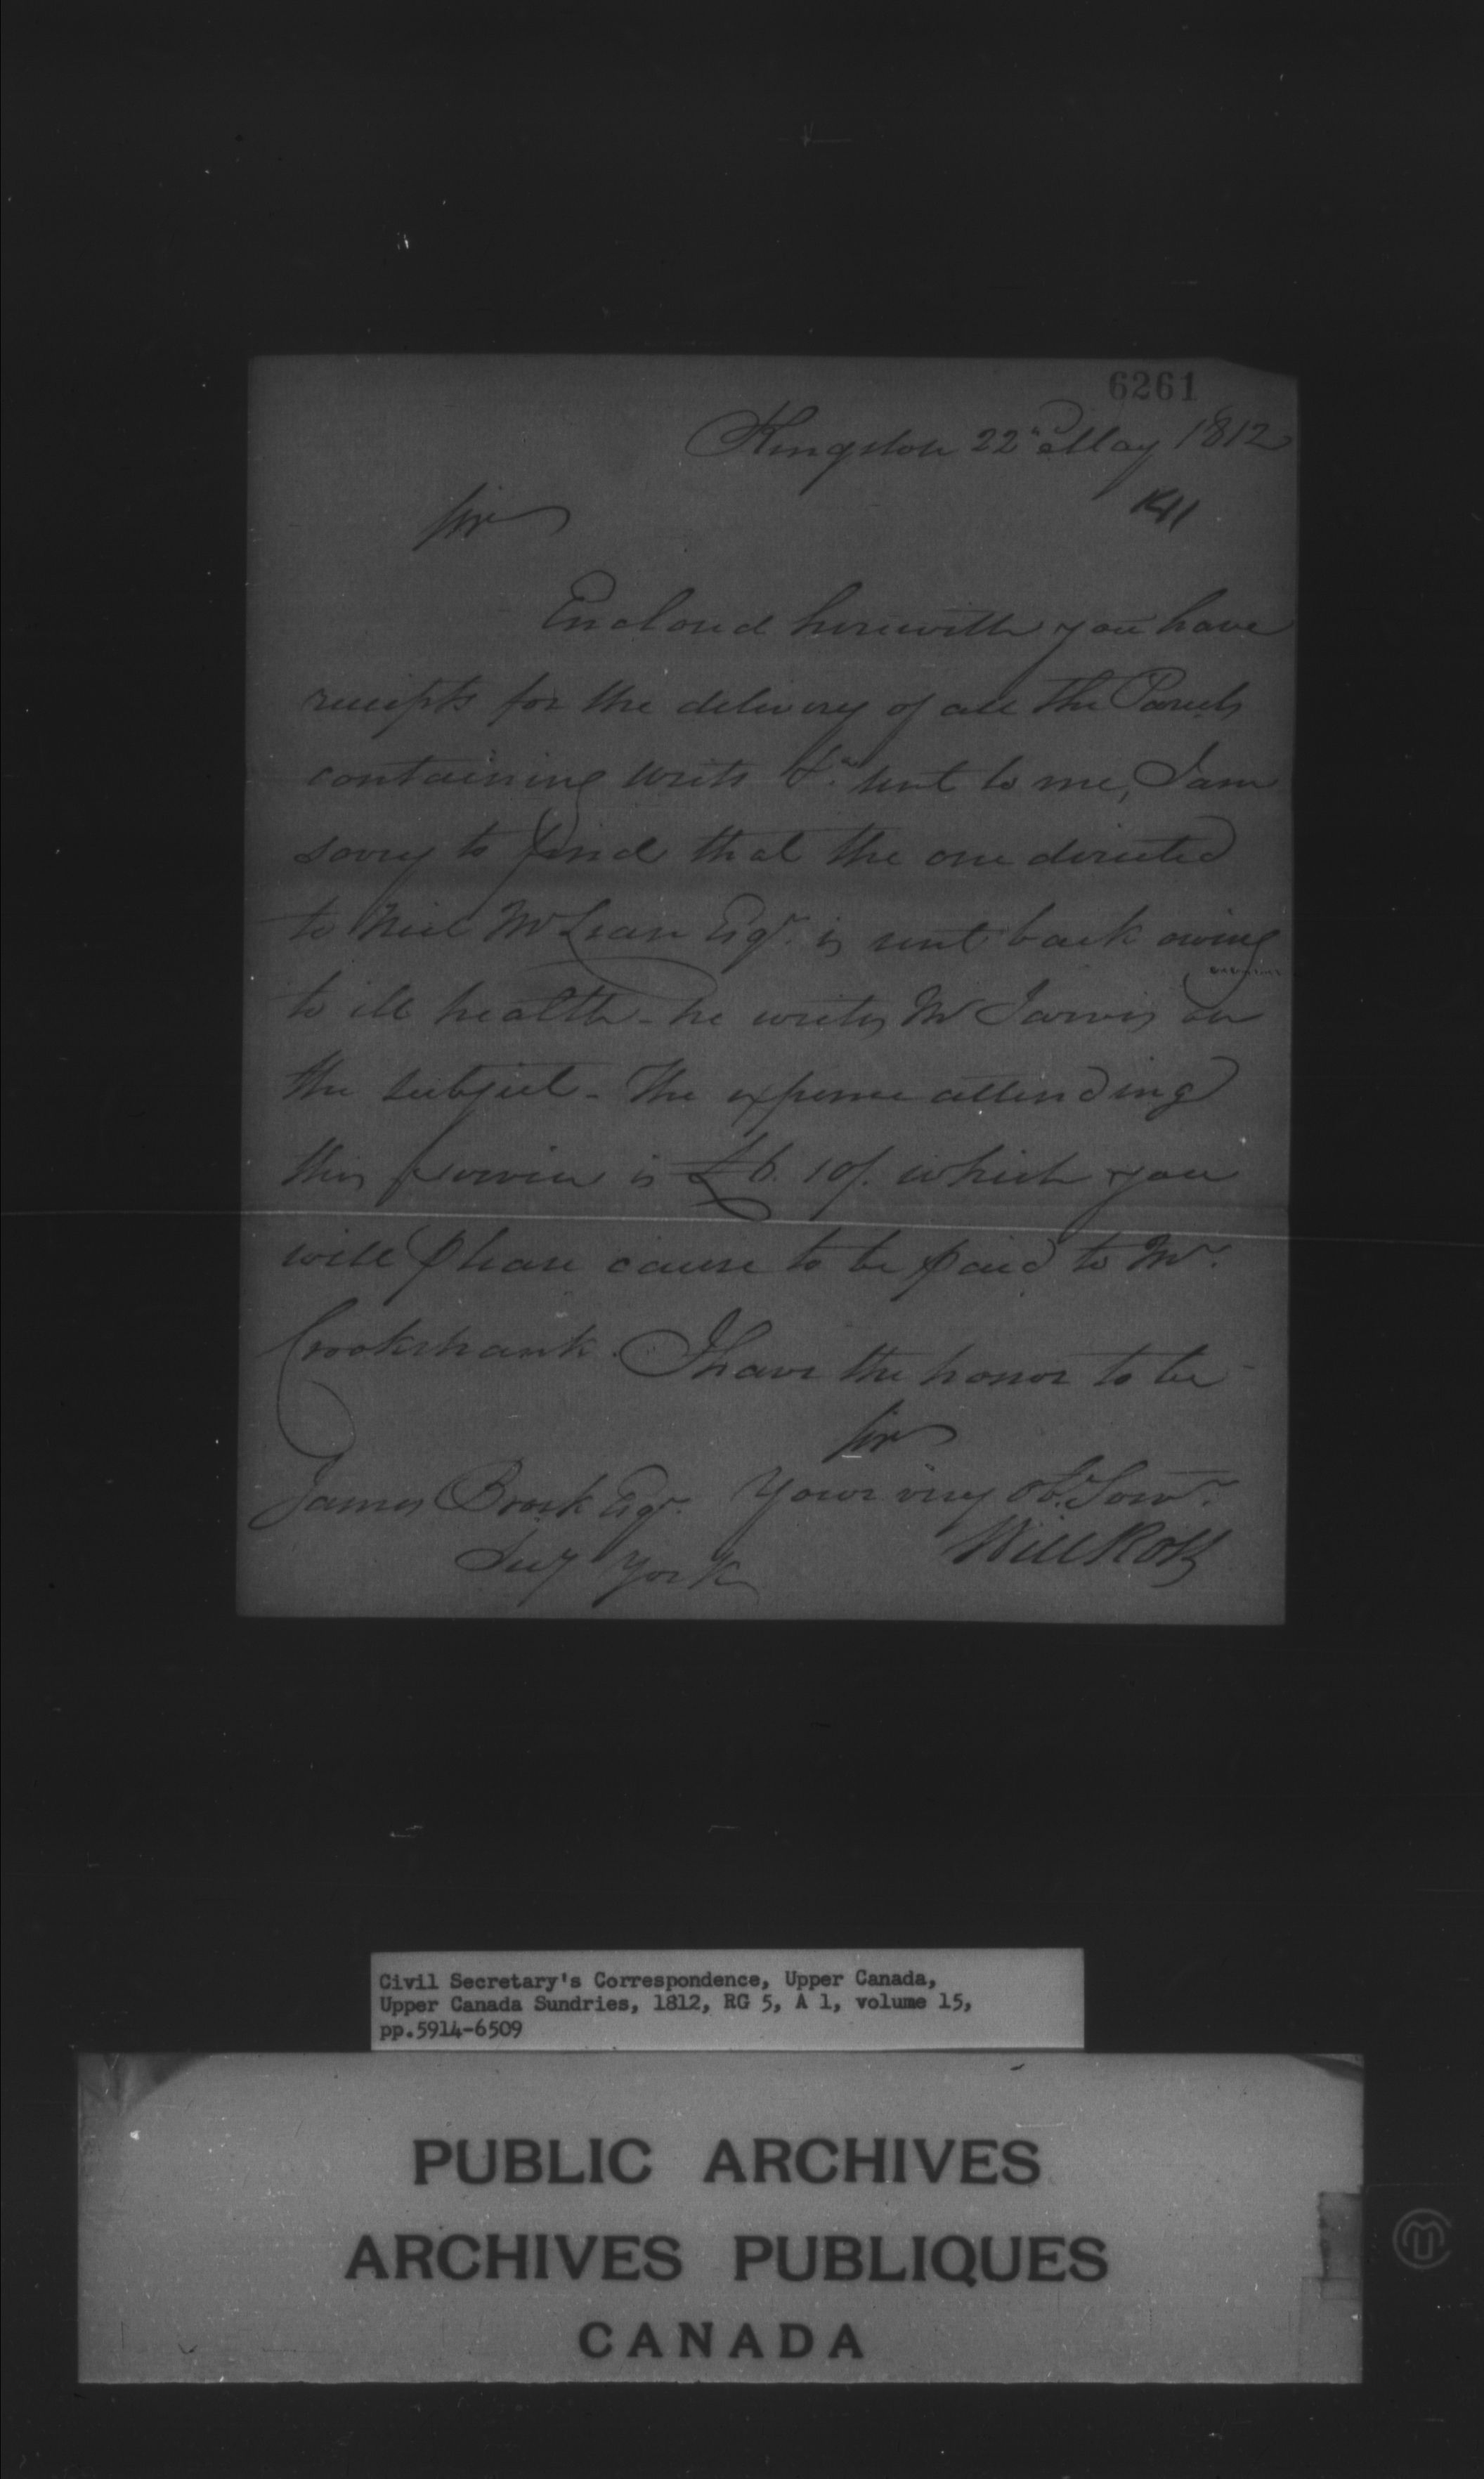 6261
Kingston 22nd May 1812
Sir
Enclosed herewith you have
receipts for the delivery of all the Parcels
containing Writs &c. sent to me, I am
sorry to find that the one directed
to Neil McLean Esqr. is sent back owing
to ill health - he writes Mr Jarvis on
the subject - The expense attending
this service is £6. 10/. which you
will please cause to be paid to Mr.
Crookshank. I have the honor to be
Sir
James Brock Esqr. Your very Ob. Serv.
Secy York
Will Ross
Civil Secretary's Correspondence, Upper Canada,
Upper Canada Sundries, 1812, RG 5, A 1, volume 15,
pp.5914-6509
PUBLIC ARCHIVES
ARCHIVES PUBLIQUES
CANADA